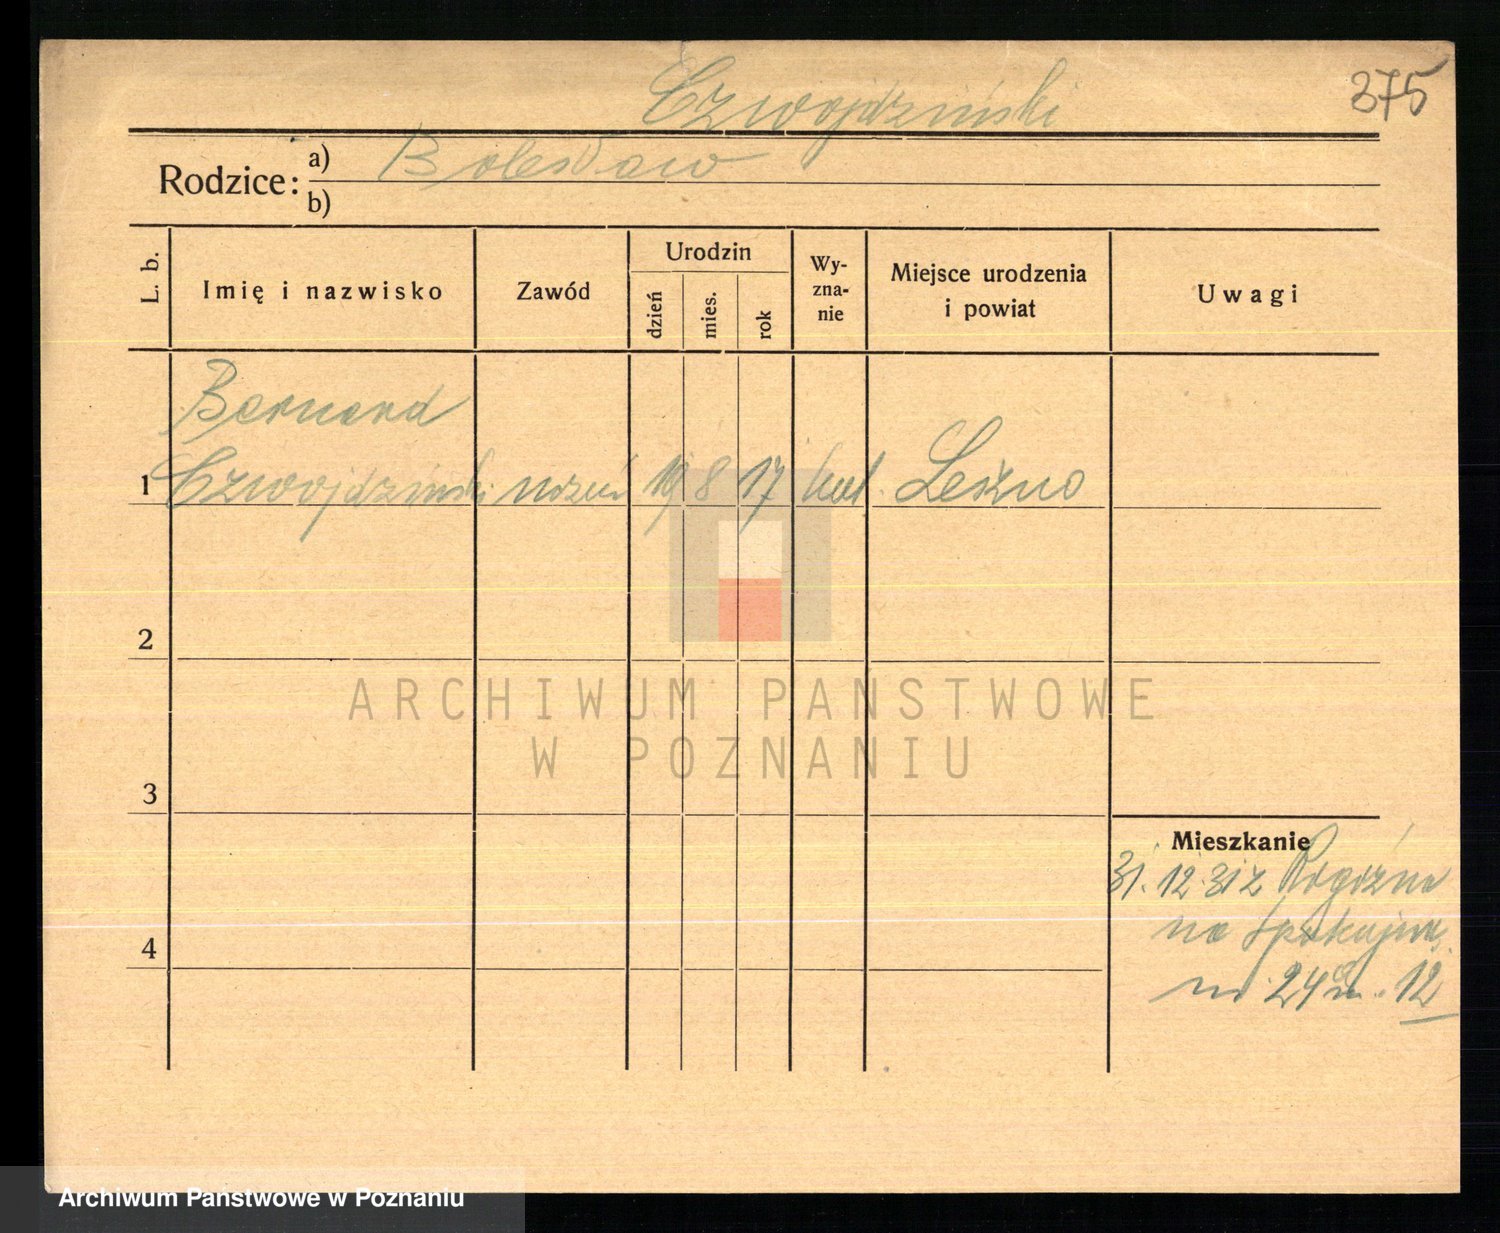 Czwojdziński
375
Rodzice: a) Bolesław
b)
L. b.
Imię i nazwisko
Zawód
Urodzin
dzień
mies.
rok
Wy-
zna-
nie
Miejsce urodzenia
i powiat
Uwagi
Bernard
1 Czwojdziński uczeń 19 8 17 kat.
2
3
4
Mieszkanie
31.12.31 z
na
m. 12
ARCHIWUM PAŃSTWOWE
W POZNANIU
Archiwum Państwowe w Poznaniu